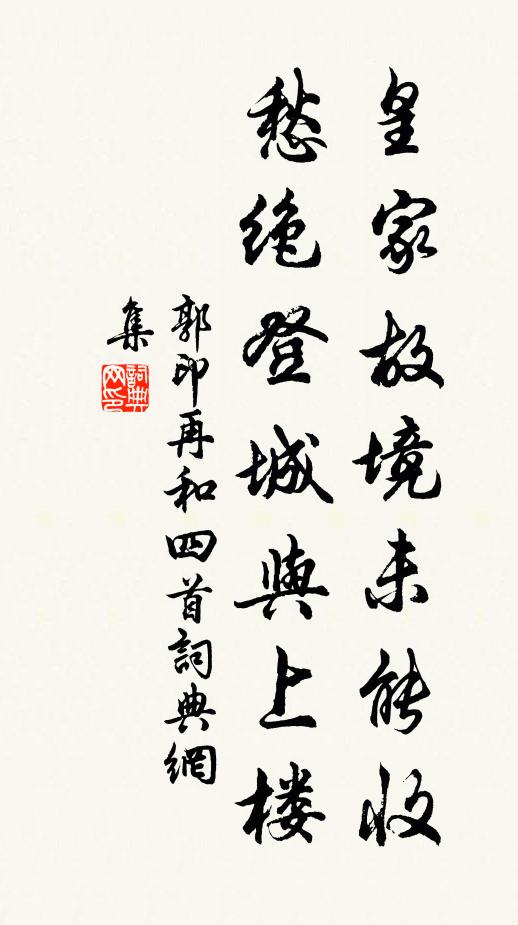 皇家故境未能收
愁绝登城與上楼
郭印再和四首詞典網
集
詞典
网印